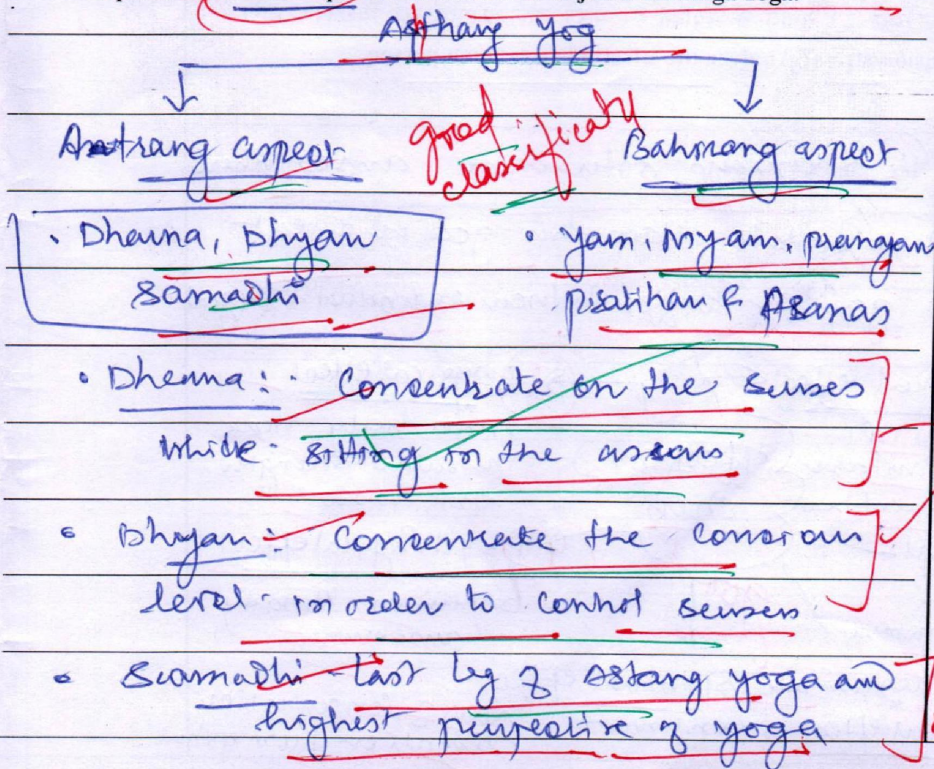 Asthang Yog
Antrang aspect
good classificaty
Bahirang aspect
• Dharna, Dhyan
Samadhi
• Yam, Niyam, prangam
& Asanas
• Dharna: Consentrate on the senses
while sitting in the
• Dhyan - Consentrate the
level in order to control senses.
• Samadhi - last leg of Astang yoga and
highest of yoga